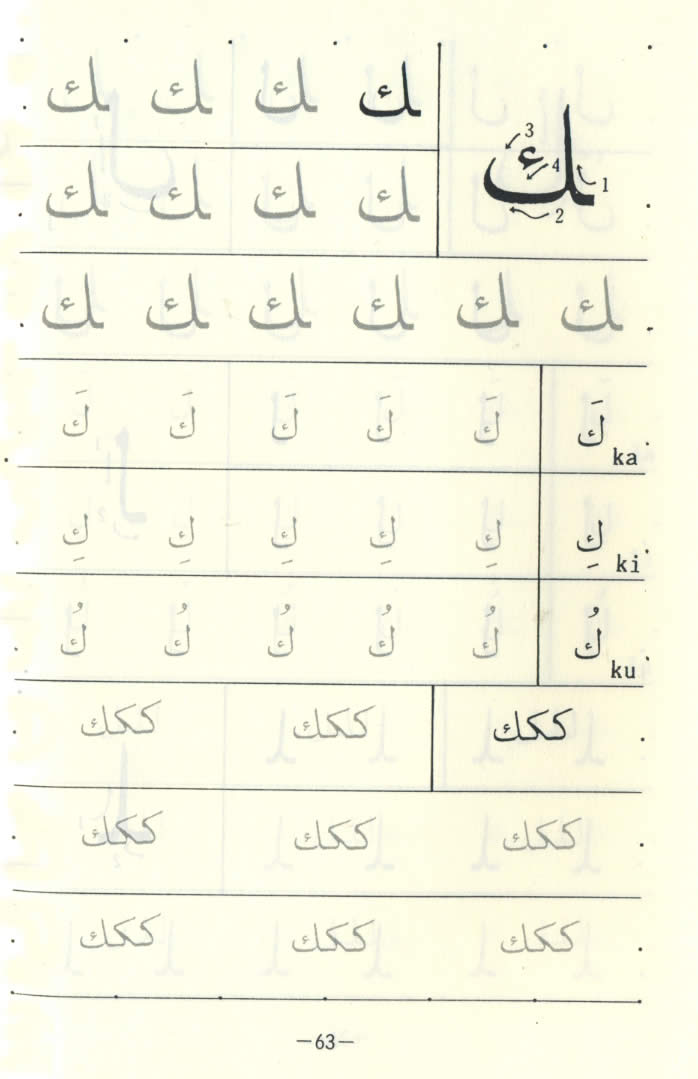 ك
3
4
1
2
ك ك ك ك
ك ك ك ك
ك ك ك ك ك ك
كَ كَ كَ كَ كَ كَ
ka
كِ كِ كِ كِ كِ كِ
ki
كُ كُ كُ كُ كُ كُ
ku
ككك ككك ككك
ككك ككك ككك
ككك ككك ككك
—63—